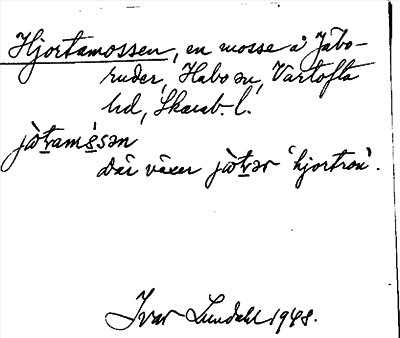 Hjortamossen, en mosse å Jäbo-
ruder, Habo sn, Vartofta
hd, Skarab. l.
jò̀tramósən
där växer jò̀trər 'hjortron'.
Ivar Lundahl 1948.